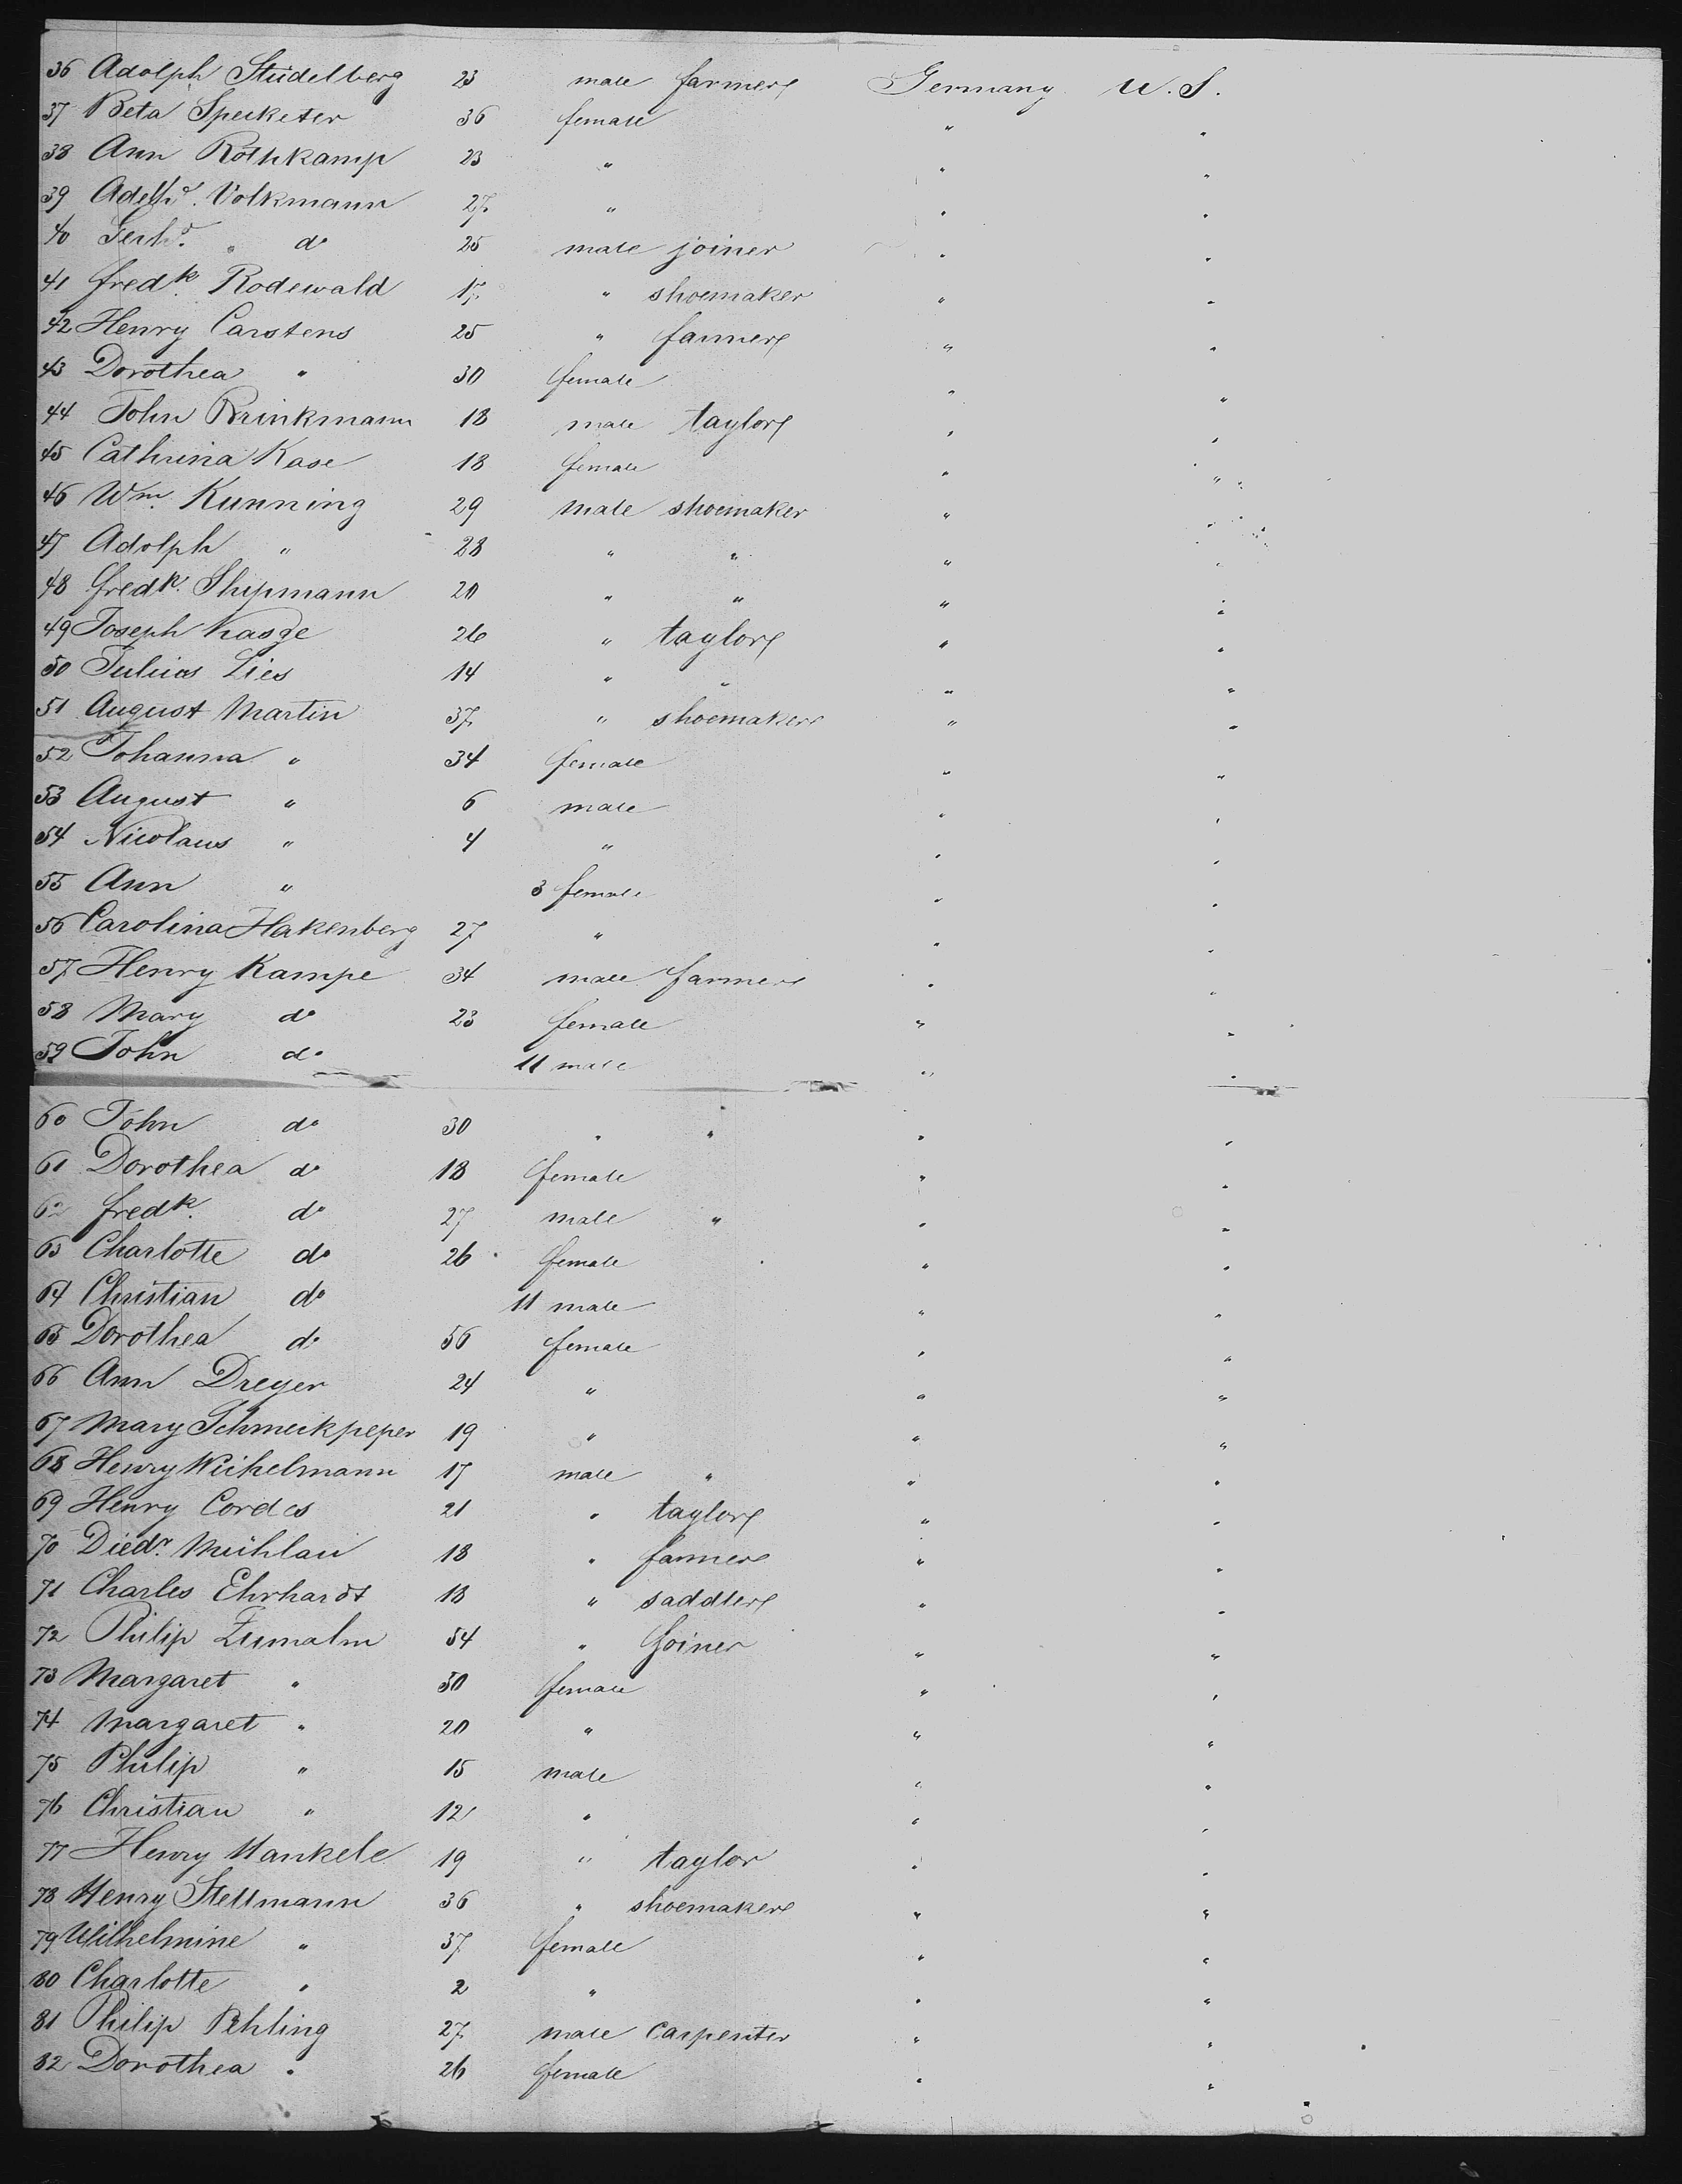 36 Adolph Studelberg 23 male farmer Germany U.S.
37 Beta Specketer 36 female " "
38 Ann Rothkamp 23 " " "
39 Adelhd. Volkmann 27 " " "
40 Gerhd. " do 25 male joiner " "
41 fredk. Rodewald 17 " shoemaker " "
42 Henry Carstens 25 " farmer " "
43 Dorothea " 30 female " "
44 John Brinkmann 18 male taylor " "
45 Cathrina Kase 18 female " "
46 Wm. Kunning 29 male shoemaker " "
47 Adolph " 28 " " " "
48 fredk. Shipmann 20 " " " "
49 Joseph Kasge 26 " taylor " "
50 Julius Lies 14 " " " "
51 August Martin 37 " shoemaker " "
52 Johanna " 34 female " "
53 August " 6 male " "
54 Nicolaus " 4 " " "
55 Ann " 3 female " "
56 Carolina Hakenberg 27 " " "
57 Henry Kampe 34 male farmer " "
58 Mary do 23 female " "
59 John do 11 male " "
60 John do 30 " " " "
61 Dorothea do 18 female " "
62 fredk. do 27 male " " "
63 Charlotte do 26 female " "
64 Christian do 11 male " "
65 Dorothea do 56 female " "
66 Ann Dreyer 24 " " "
67 Mary Schmeckpeper 19 " " "
68 Henry Weihelmann 17 male " " "
69 Henry Cordes 21 " taylor " "
70 Diedr. Mühlau 18 " farmer " "
71 Charles Ehrhardt 18 " saddler " "
72 Philip Zumalm 54 " Joiner " "
73 Margaret " 50 female " "
74 Margaret " 20 " " "
75 Philip " 15 male " "
76 Christian " 12 " " "
77 Henry Mankele 19 " taylor " "
78 Henry Stellmann 36 " shoemaker " "
79 Wilhelmine " 37 female " "
80 Charlotte " 2 " " "
81 Philip Behling 27 male carpenter " "
82 Dorothea " 26 female " "